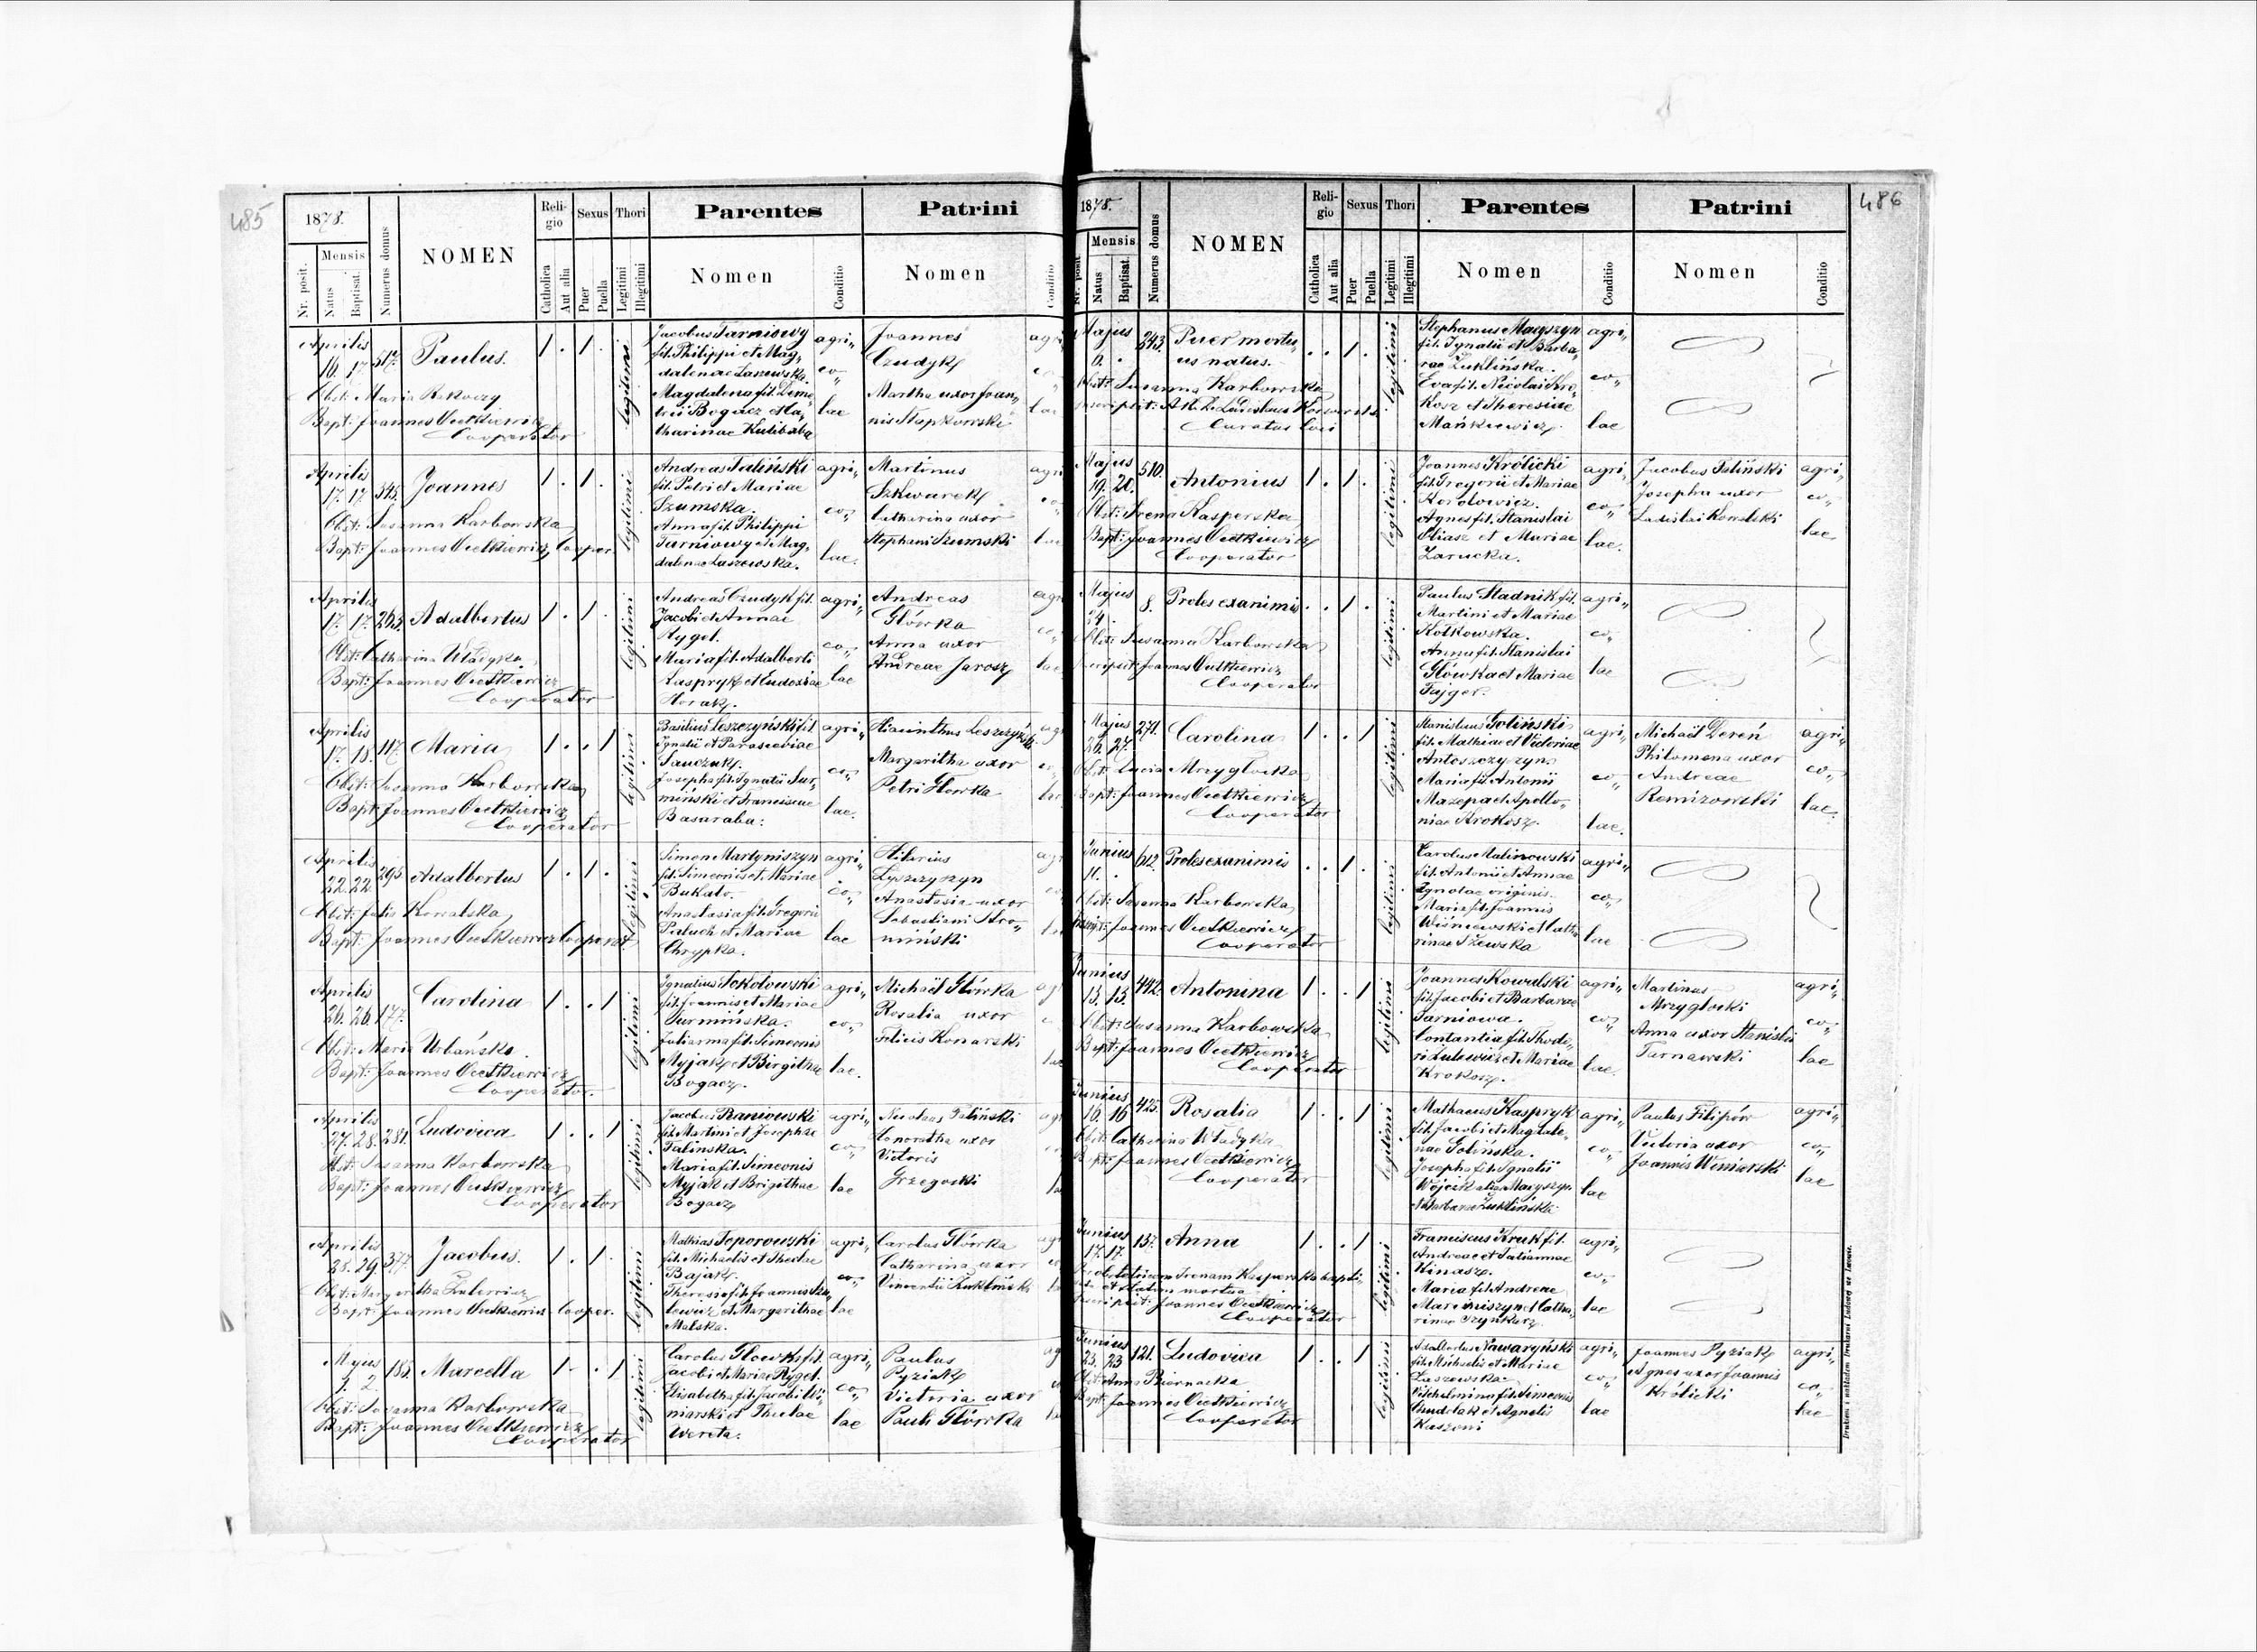 485
1878.
Nr. posit.
Mensis
Natus
Baptisat.
Numerus domus
NOMEN
Religio
Catholica
Aut alia
Sexus
Puer
Puella
Thori
Legitimi
Illegitimi
Parentes
Nomen
Conditio
Patrini
Nomen
Conditio
Aprilis
16. 17. 517. Paulus. 1 . 1 . legitimi
Obst: Maria Rokoczy
Bapt: Joannes Oećkiewicz
Cooperator
Jacobus Tarniowy
fil. Philippi et Mag„
dalenae Laszewska.
Magdalena fil. Deme„
trii Bogacz et Ca„
tharinae Kulibaba
agri„
co„
lae
Joannes
Czudyk
Martha uxor Joan„
nis Stopkowski
Aprilis
17. 17. 345. Joannes 1 . 1 . legitimi
Obst: Susanna Karbowska
Bapt: Joannes Oećkiewicz Cooper.
Andreas Taliński
fil. Petri et Mariae
Szumska.
Anna fil. Philippi
Tarniowy et Mag„
dalenae Laszewska.
agri„
co„
lae.
Martinus
Szkwarek
Catharina uxor
Stephani Szumski
Aprilis
17. 17. 263. Adalbertus 1 . 1 . legitimi
Obst: Catharina Władyka
Bapt: Joannes Oećkiewicz
Cooperator
Andreas Czudyk fil.
Jacobi et Annae
Rygel.
Maria fil. Adalberti
Kaspryk et Eudoxiae
Horak.
agri„
co„
lae
Andreas
Głowka
Anna uxor
Andreae Jarosz
Aprilis
17. 18. 117. Maria 1 . . 1 legitimi
Obst: Susanna Karbowska
Bapt: Joannes Oećkiewicz
Cooperator
Basilius Leszczyński fil.
Ignatii et Parascebiae
Sawczuk.
Josepha fil. Ignatii Sur„
miński et Franciscae
Basaraba.
agri„
co„
lae.
Hiacinthus Leszczyński
Margaritha uxor
Petri Głowka
Aprilis
22. 22. 295 Adalbertus 1 . 1 . legitimi
Obst: Julia Kowalska
Bapt: Joannes Oećkiewicz Cooperat.
Simon Martyniszyn
fil. Simeonis et Mariae
Bukato.
Anastasia fil. Gregorii
Pieluch et Mariae
Chrypka.
agri„
co„
lae
Hilarius
Łyszczyszyn
Anastasia uxor
Sebastiani Stro„
miński
Aprilis
26. 26. 177. Carolina 1 . . 1 legitimi
Obst: Maria Urbańska.
Bapt: Joannes Oećkiewicz
Cooperator.
Ignatius Sokołowski
fil. Joannis et Mariae
Surmińska.
Julianna fil. Simeonis
Myjak et Birgithae
Bogacz.
agri„
co„
lae.
Michaël Głowka
Rosalia uxor
Felicis Konarski
Aprilis
27. 28. 281. Ludovica 1 . . 1 legitimi
Obst: Susanna Karbowska
Bapt: Joannes Oećkiewicz
Cooperator
Jacobus Baniowski
fil. Martini et Josephae
Talinska.
Maria fil. Simeonis
Myjak et Brigithae
Bogacz
agri„
co„
lae
Nicolaus Taliński
Honoratha uxor
Victoris
Grzegorski
Aprilis
28. 29. 377. Jacobus. 1 . 1 . legitimi
Obst: Margaritha Zulewicz
Bapt: Joannes Oećkiewicz Cooper.
Mathias Toporowski
fil. Michaëlis et Theclae
Bajak.
Theresia fil. Joannis Zu„
lewicz et Margarithae
Malska.
agri„
co„
lae
Carolus Głowka
Catharina uxor
Vincentii Żukliński
Majus
1. 2. 185. Marcella 1 . . 1 legitimi
Obst: Susanna Karbowska
Bapt: Joannes Oećkiewicz
Cooperator
Carolus Głowka fil.
Jacobi et Mariae Rygel.
Elisabetha fil. Jacobi Wi„
niarski et Theclae
Wereta.
agri„
co„
lae
Paulus
Pyziak
Victoria uxor
Pauli Głowka
486
1878.
Nr. posit.
Mensis
Natus
Baptisat.
Numerus domus
NOMEN
Religio
Catholica
Aut alia
Sexus
Puer
Puella
Thori
Legitimi
Illegitimi
Parentes
Nomen
Conditio
Patrini
Nomen
Conditio
Majus
6. . 343. Puer mortu„
us natus. . . 1 . legitimi
Obst: Susanna Karbowska
Inscripsit: Ladislaus
Curatus loci
Stephanus Maryszyn
fil. Ignatii et Barba„
rae Żuklińska.
Eva fil. Nicolai
et Theresiae
Mańkiewicz.
agri„
co„
lae
Majus
19. 20. 510. Antonius 1 . 1 . legitimi
Obst: Irena Kasperska
Bapt: Joannes Oećkiewicz
Cooperator
Joannes Królicki
fil. Gregorii et Mariae
Korolowicz.
Agnes fil. Stanislai
Eliasz et Mariae
Zarucka.
agri„
co„
lae.
Jacobus Taliński
Josepha uxor
Ladislai Konalski
agri„
co„
lae
Majus
24. . 8. Proles exanimis . . 1 . legitimi
Obst: Susanna Karbowska
Inscripsit: Joannes Oećkiewicz
Cooperator
Paulus Stadnik fil.
Martini et Mariae
Kotkowska.
Anna fil. Stanislai
Głowka et Mariae
Fajger.
agri„
co„
lae
Majus
26. 27. 271. Carolina 1 . . 1 legitimi
Obst: Lucia Mrzyglocka
Bapt: Joannes Oećkiewicz
Cooperator
Stanislaus Goliński
fil. Mathiae et Victoriae
Antoszczyszyn.
Maria fil. Antonii
Mazepa et Apollo„
niae Krokosz.
agri„
co„
lae.
Michaël Dereń
Philomena uxor
Andreae
Remizowski
agri„
co„
lae.
Junius
11. . 612. Proles exanimis . . 1 . legitimi
Obst: Susanna Karbowska
Inscripsit: Joannes Oećkiewicz
Cooperator
Carolus Malinowski
fil. Antonii et Annae
Ignotae originis.
Maria fil. Joannis
Wiśniewski et Catha
rinae
agri„
co„
lae
Junius
13. 13. 442. Antonina 1 . . 1 legitimi
Obst: Susanna Karbowska
Bapt: Joannes Oećkiewicz
Cooperator
Joannes Kowalski
fil. Jacobi et Barbarae
Tarniowa.
Constantia fil. Theodo„
ri Zulewicz et Mariae
Krokosz.
agri„
co„
lae.
Martinus
Mrzyglocki
Anna uxor Stanislai
Tarnawski
agri„
co„
lae
Junius
16. 16 425. Rosalia 1 . . 1 legitimi
Obst: Catharina Władyka
Bapt: Joannes Oećkiewicz
Cooperator
Mathaeus Kaspryk
fil. Jacobi et Magdale„
nae Golińska.
Josepha fil. Ignatii
Wójcik alias Maryszyn
et Barbarae Żuklińska
agri„
co„
lae
Paulus Filipów
Victoria uxor
Joannis Winiarski
agri„
co„
lae
Junius
17. 17. 157. Anna 1 . . 1 legitimi
Irenam Kasperska bapti„
et statim mortua
Inscripsit: Joannes Oećkiewicz
Cooperator
Franciscus Kruk fil.
Andreae et Juliannae
Kinasz.
Maria fil. Andreae
Martiniszyn et Catha„
rinae Szynkarz.
agri„
co„
lae
Junius
23. 23 121. Ludovica 1 . . 1 legitimi
Obst: Anna Biernacka
Bapt: Joannes Oećkiewicz
Cooperator
Adalbertus Nawaryński
fil. Michaëlis et Mariae
Laszewska
Vilhelmina fil. Simeonis
Chudolak et Agnetis
Kaszoni
agri„
co„
lae
Joannes Pyziak
Agnes uxor Joannis
Królicki
agri„
co„
lae